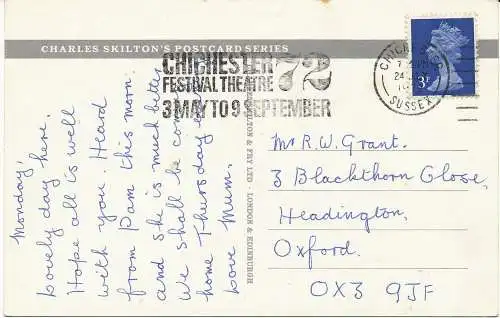 CHARLES SKILTON'S POSTCARD SERIES
CHICHESTER
FESTIVAL THEATRE
72
3 MAY TO 9 SEPTEMBER
7
24
19
SUSSEX
3P
Monday,
Lovely day here.
Hope all is well
with you. Heard
from Pam this morn:
and she is much better
We shall be coming
home Thursday
Love Mum.
SKILTON & FRY LTD · LONDON & EDINBURGH
Mr R.W. Grant.
3 Blackthorn Close,
Headington,
Oxford.
OX3 9JF